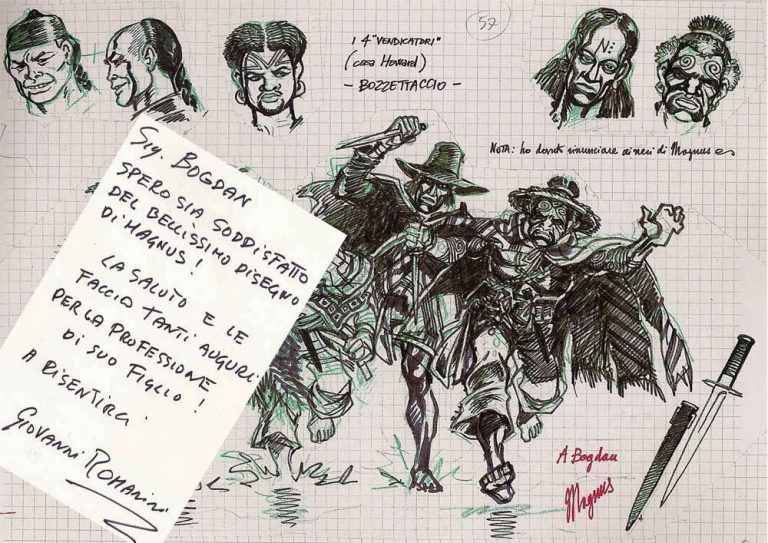 59
I 4 "VENDICATORI"
(casa Howard)
- BOZZETTACCIO -
N:
NOTA: ho dovuto rinunciare ai neri di Magnus
SIG. BOGDAN
SPERO SIA SODDISFATTO
DEL BELLISSIMO DISEGNO
DI MAGNUS!
LA SALUTO E LE
FACCIO TANTI AUGURI
PER LA PROFESSIONE
DI SUO FIGLIO!
A RISENTIRCI.
GIOVANNI ROMANINI
A Bogdan
Magnus